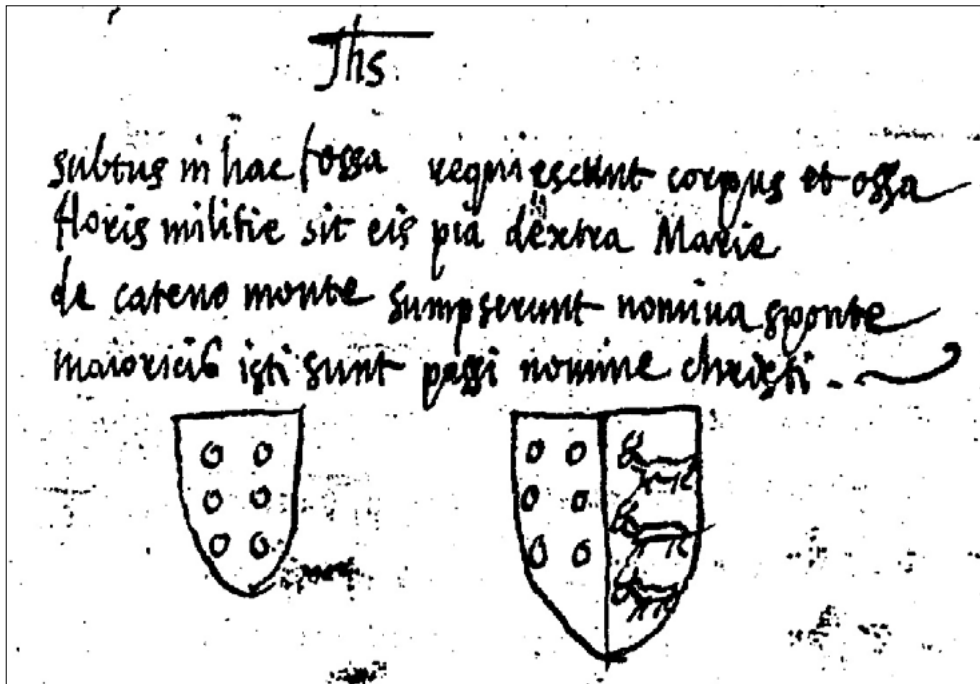 Jhs
subtus in hac fossa requiescunt corpus et ossa
floris militie sit eis pia dextra Marie
de cateno monte sumpserunt nomina sponte
maioricis isti sunt passi nomine christi